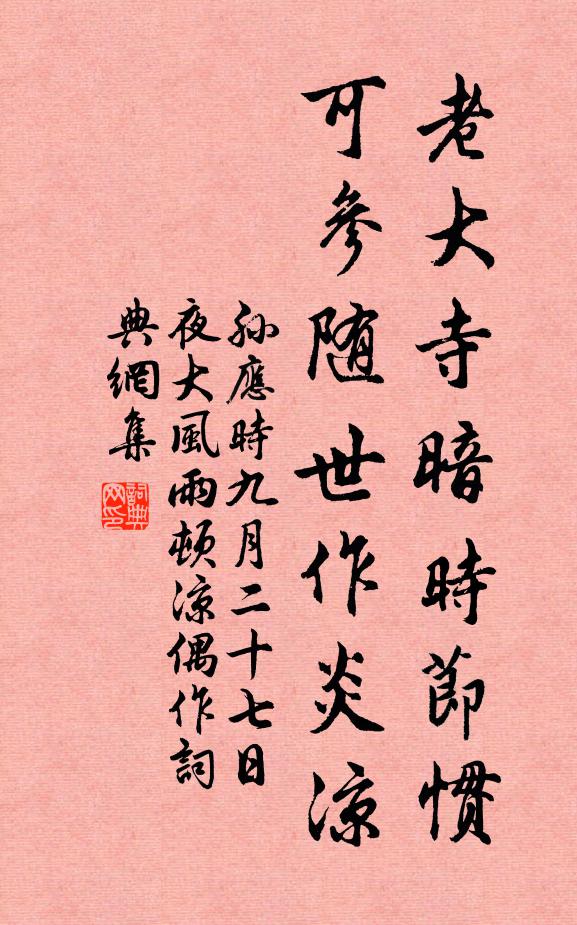 老大寺暗時節慣
可參随世作炎涼
孫應時九月二十七日
夜大風雨頓涼偶作詞
典網集
詞典网印